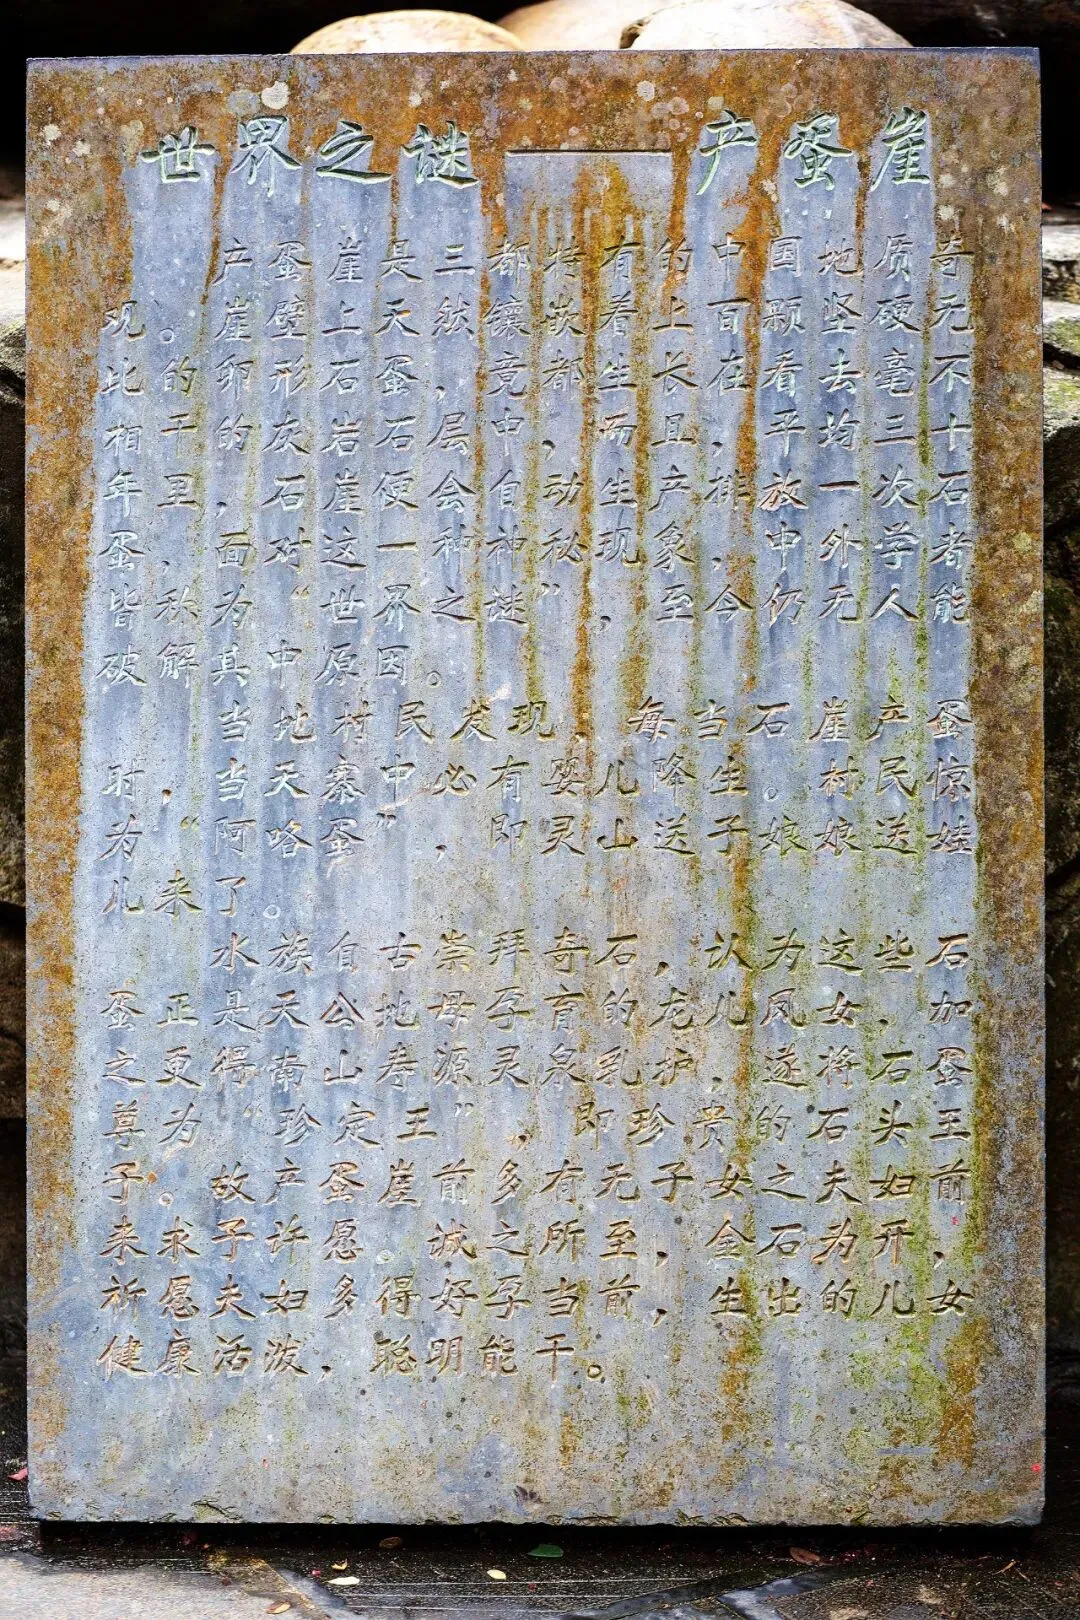 世界之谜——产蛋崖
产蛋崖是三都特有的中国地质奇
观。崖壁上天然镶嵌着上百颗坚硬无
比的卵形石蛋,竟都生长在看去毫不
相干的灰岩石层中,而且,平均三十
年里,石崖便会自动生产排放一次石
蛋,面对这一种神秘现象,中外学者
皆称为“世界之谜”,至今仍无人能
破解其中原因。
当地村民发现,每当石崖产蛋
时,当天寨中必有婴儿降生。村民惊
为“阿略蛋”,即灵山送子娘娘送娃
儿来了。
水族自古崇拜奇石,认为这些石
蛋正是天公地母孕育的龙儿凤女.加
之更得南山寿源灵泉乳护,遂将石蛋
尊为“珍定王”,即珍贵的石头王
子。故产蛋崖前多有无子女之夫妇前
来求子许愿。诚之所至,金石为开,
祈愿夫妇多得好孕当前,生出的儿女
健康活泼,聪明能干。